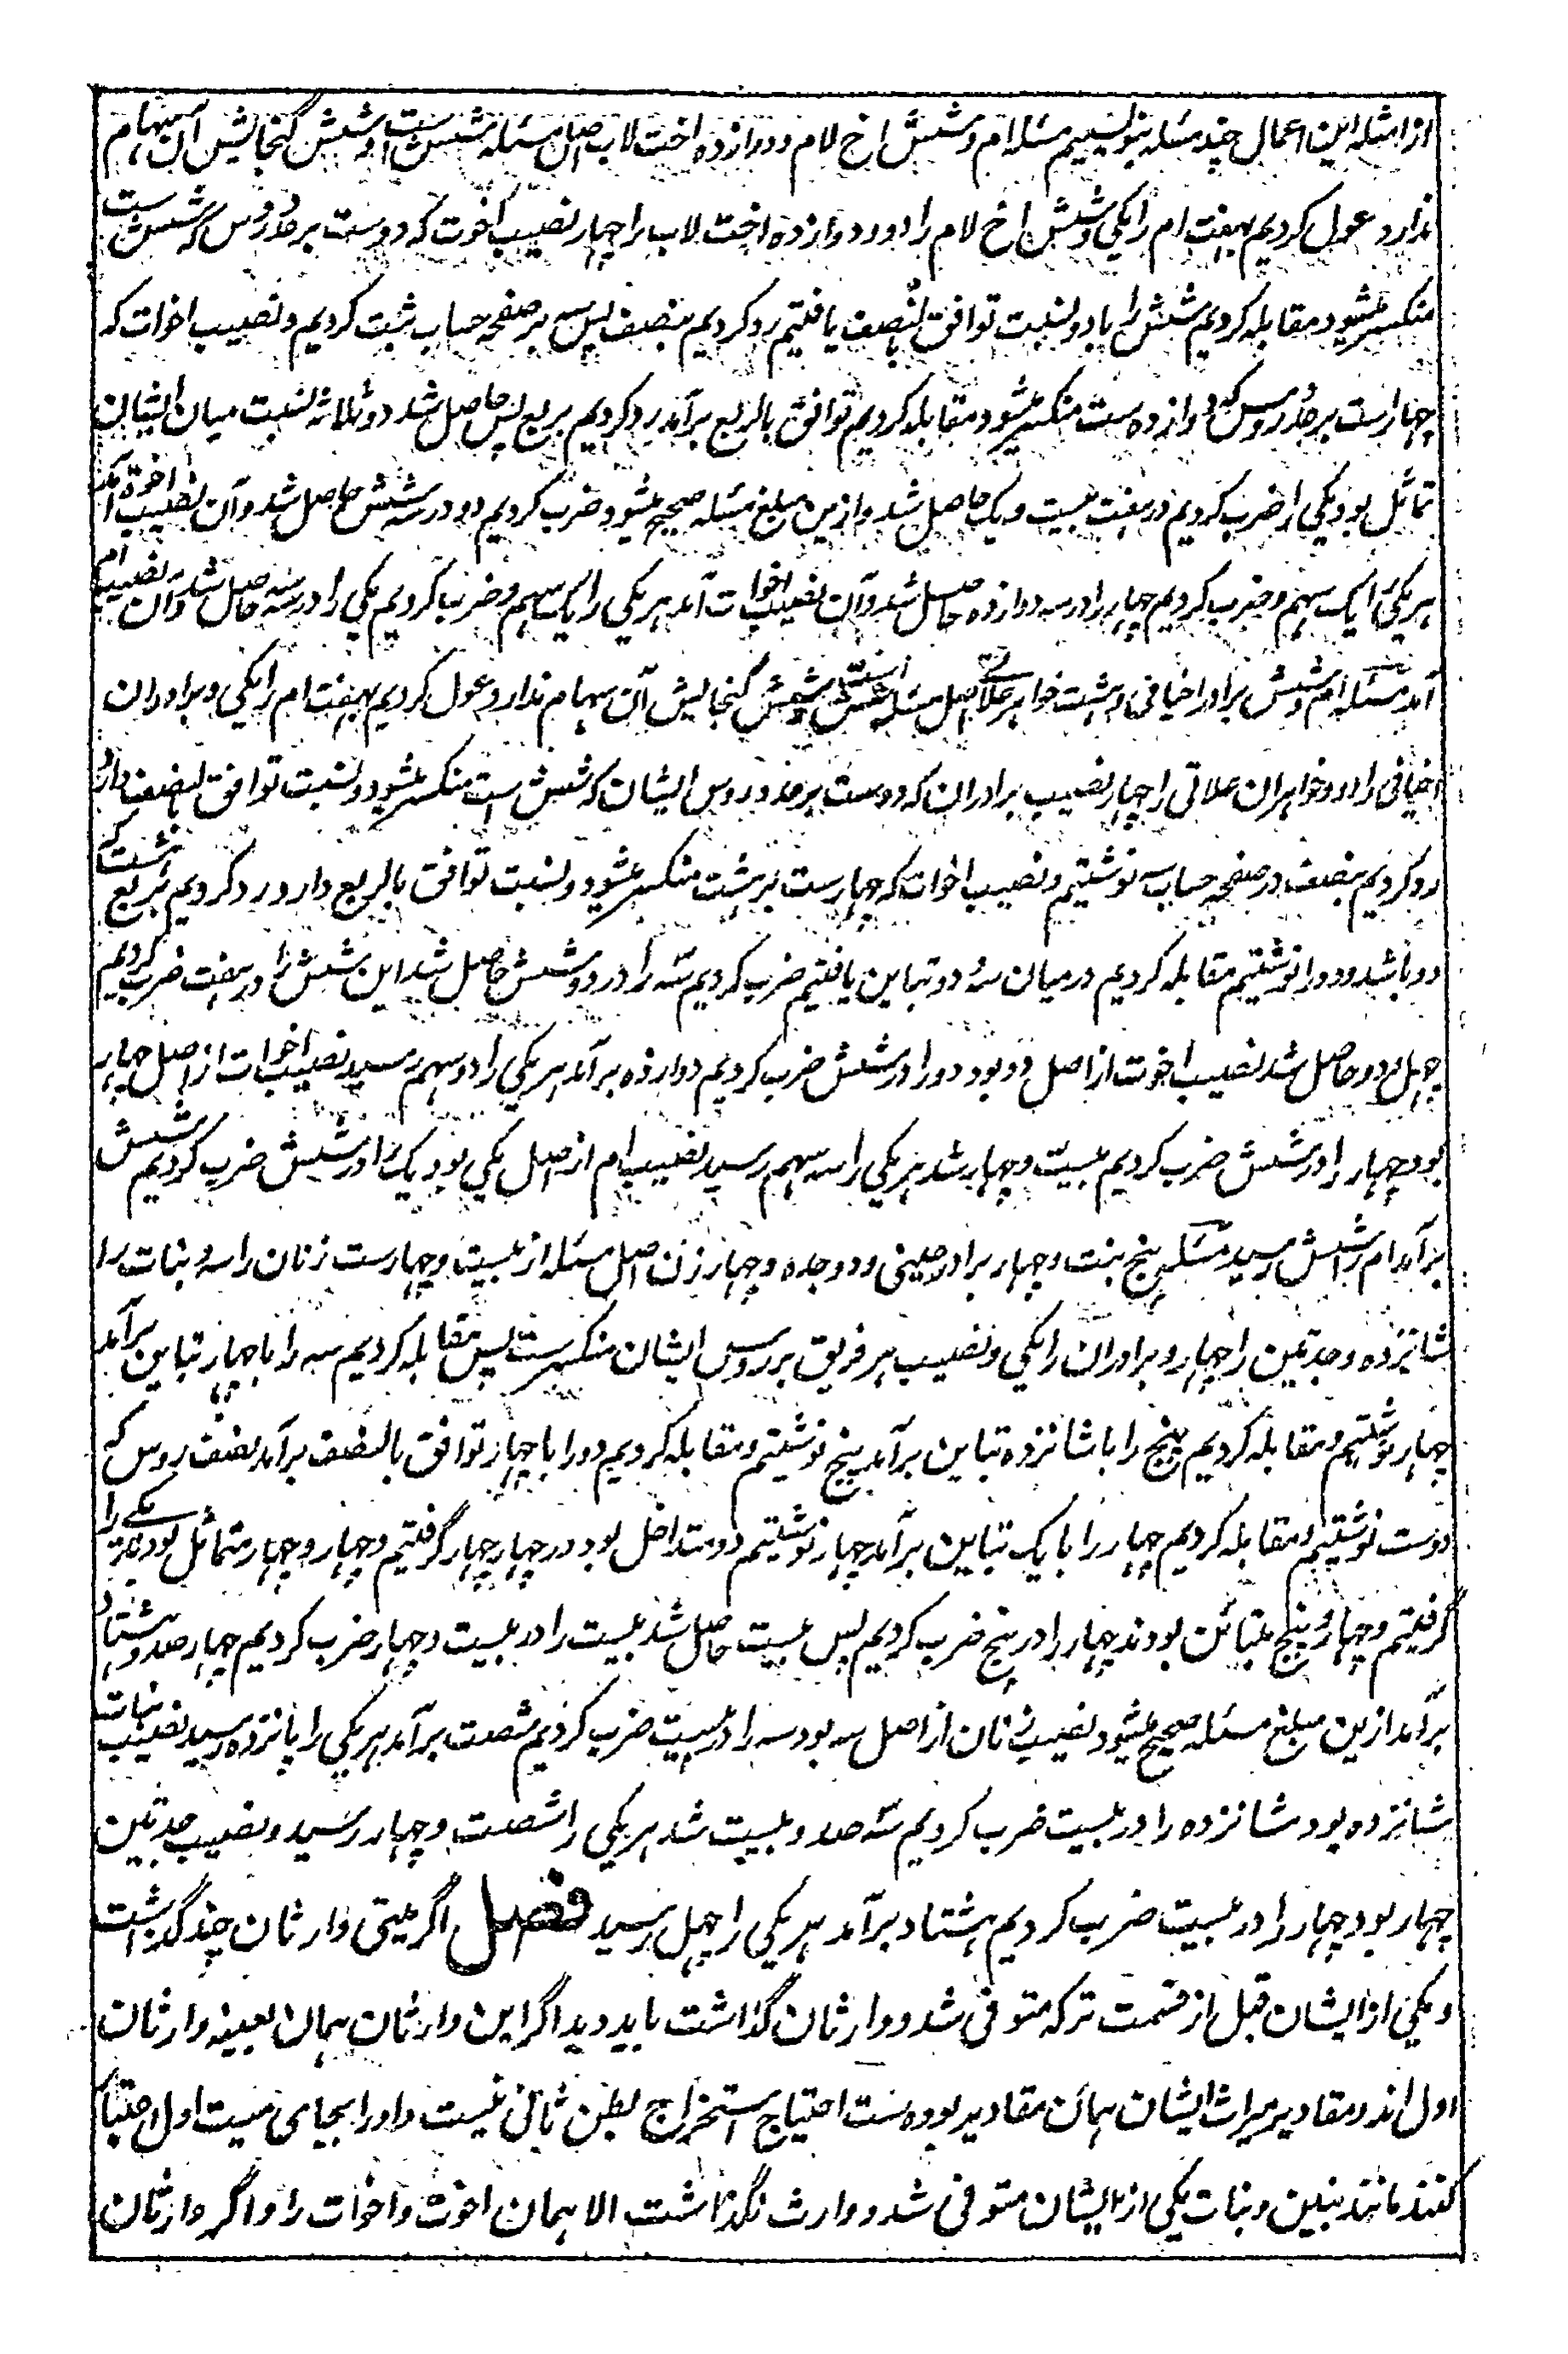 از امثلۀ این اعمال چند مسئله بنویسیم مسئله ام و شش اخ لام و دوازده اخت لاب اصل مسئله شش ست و شش گنجایش آن سهام
ندارد عول کردیم بهفت ام را یکی و شش اخ لام را دو و دوازده اخت لاب را چهار نصیب اخوت که دوست بر عدد روس که شش ست
منکسر میشود مقابله کردیم شش را با دو نسبت توافق بالنصف یافتیم رد کردیم بنصف پس سه بر صفحه حساب ثبت کردیم و نصیب اخوات که
چهار است بر عدد روس که دوازده ست منکسر میشود مقابله کردیم توافق بالربع برآمد رد کردیم بربع پس حاصل شد دو ثلاثه نسبت میان ایشان
تماثل بود یکی را ضرب کردیم در هفت بیست و یک حاصل شد و ازین مبلغ مسئله صحیح میشود ضرب کردیم دو در سه شش حاصل شد و آن نصیب اخوة آمد
هر یکی را یک سهم و ضرب کردیم چهار را در سه دوازده حاصل شد و آن نصیب اخوات آمد هر یکی را یک سهم و ضرب کردیم یکی را در سه سه حاصل شد و آن نصیب ام
آمد مسئله ام و شش برادر اخیافی و هشت خواهر علاتی اصل مسئله شش است و شش گنجایش آن سهام ندارد عول کردیم بهفت ام را یکی و برادران
اخیافی را دو و خواهران علاتی را چهار نصیب برادران که دوست بر عدد روس ایشان که شش است منکسر میشود و نسبت توافق بالنصف دارد
رد کردیم بنصف در صفحه حساب سه نوشتیم و نصیب اخوات که چهارست بر هشت منکسر میشود و نسبت توافق بالربع دارد رد کردیم بربع هشت که
دو باشد و دو را نوشتیم مقابله کردیم در میان سه و دو تباین یافتیم ضرب کردیم سه را در دو شش حاصل شد این شش را در هفت ضرب کردیم
چهل و دو حاصل شد نصیب اخوت از اصل دو بود دو را در شش ضرب کردیم دوازده برآمد هر یکی را دو سهم رسید نصیب اخوات از اصل چهار
بود چهار را در شش ضرب کردیم بیست و چهار شد هر یکی را سه سهم رسید نصیب ام از اصل یکی بود یک را در شش ضرب کردیم شش
برآمد ام را شش رسید مسئله پنج بنت و چهار برادر عینی و دو جده و چهار زن اصل مسئله از بیست و چهارست زنان را سه و بنات را
شانزده و جدتین را چهار و برادران را یکی و نصیب هر فریق بر روس ایشان منکسرست پس مقابله کردیم سه را با چهار تباین برآمد
چهار نوشتیم و مقابله کردیم پنج را با شانزده تباین برآمد پنج نوشتیم و مقابله کردیم دو را با چهار توافق بالنصف برآمد نصف روس که
دوست نوشتیم و مقابله کردیم چهار را با یک تباین برآمد چهار نوشتیم دو متداخل بود در چهار چهار گرفتیم و چهار و چهار متماثل بودند یکے را
گرفتیم و چهار و پنج متبائن بودند چهار را در پنج ضرب کردیم پس بیست حاصل شد بیست را در بیست و چهار ضرب کردیم چهار صد و هشتاد
برآمد ازین مبلغ مسئله صحیح میشود نصیب زنان از اصل سه بود سه را در بیست ضرب کردیم شصت برآمد هر یکی را پانزده رسید نصیب بنات
شانزده بود شانزده را در بیست ضرب کردیم سه صد و بیست شد هر یکی را شصت و چهار رسید و نصیب جدتین
چهار بود چهار را در بیست ضرب کردیم هشتاد برآمد هر یکی را چهل رسید فصل اگر میتی وارثان چند گذاشت
و یکی از ایشان قبل از قسمت ترکه متوفی شد و وارثان گذاشت باید دید اگر این وارثان همان بعینه وارثان
اول اند و مقادیر میراث ایشان همان مقادیر بوده ست احتیاج استخراج بطن ثانی نیست و او را بجای میت اول اعتبار
کنند مانند بنین و بنات یکی از ایشان متوفی شد و وارث نگذاشت الا همان اخوت و اخوات را و اگر وارثان